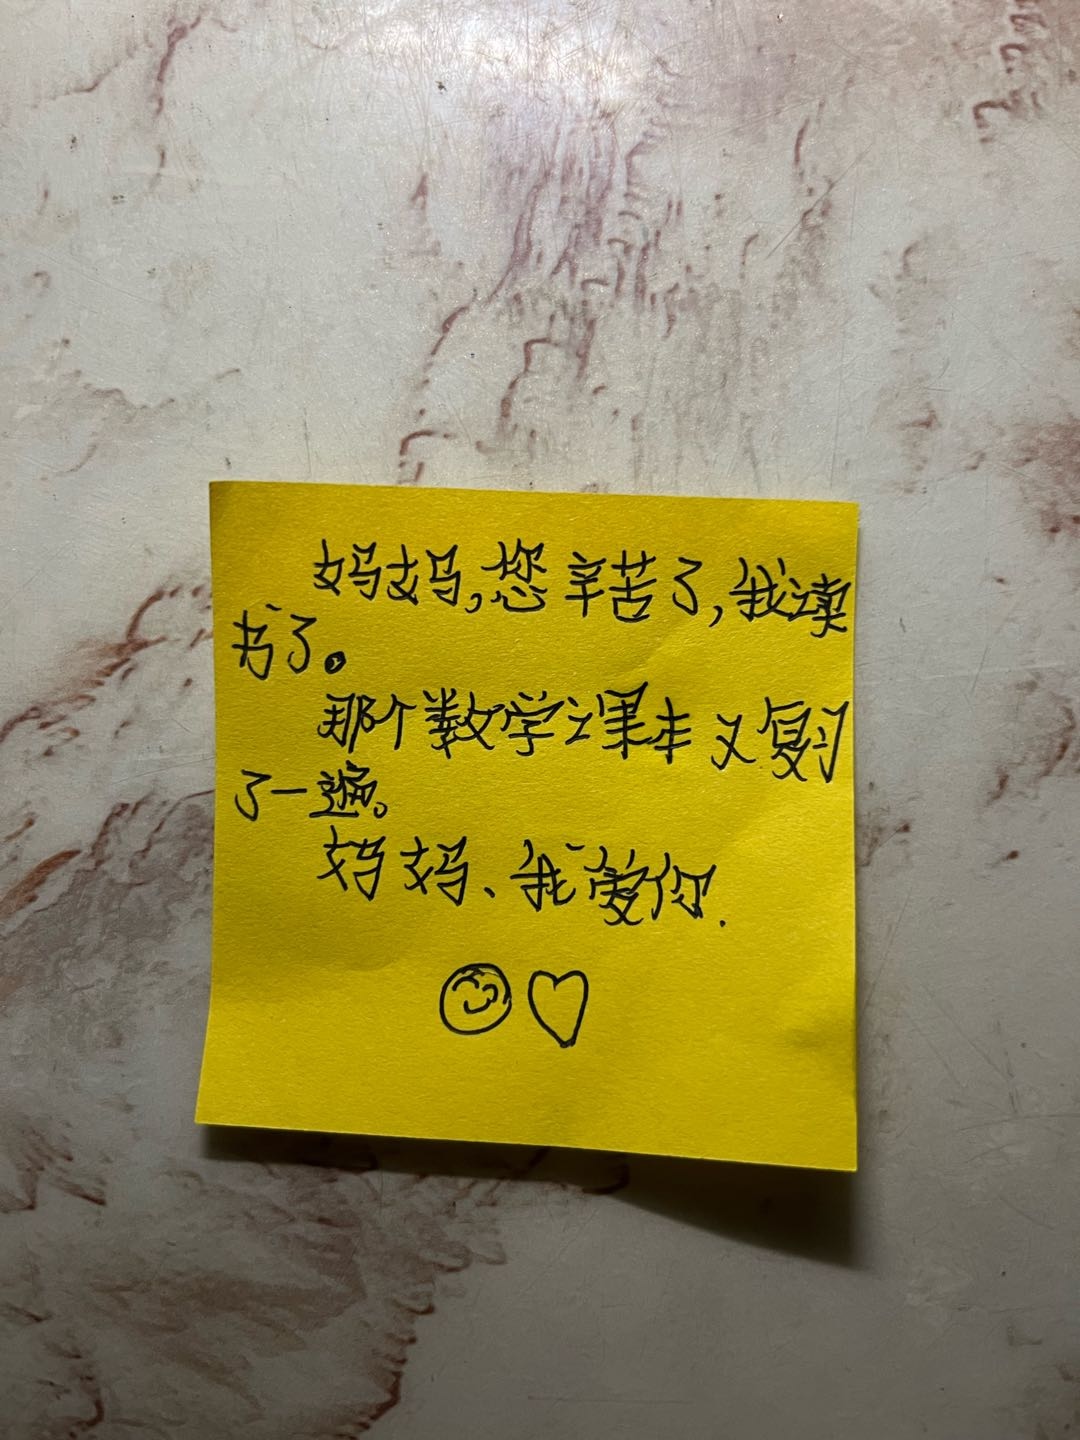 妈妈,您辛苦了,我读
书了。
那个数学课本又复习
了一遍。
妈妈、我爱你.